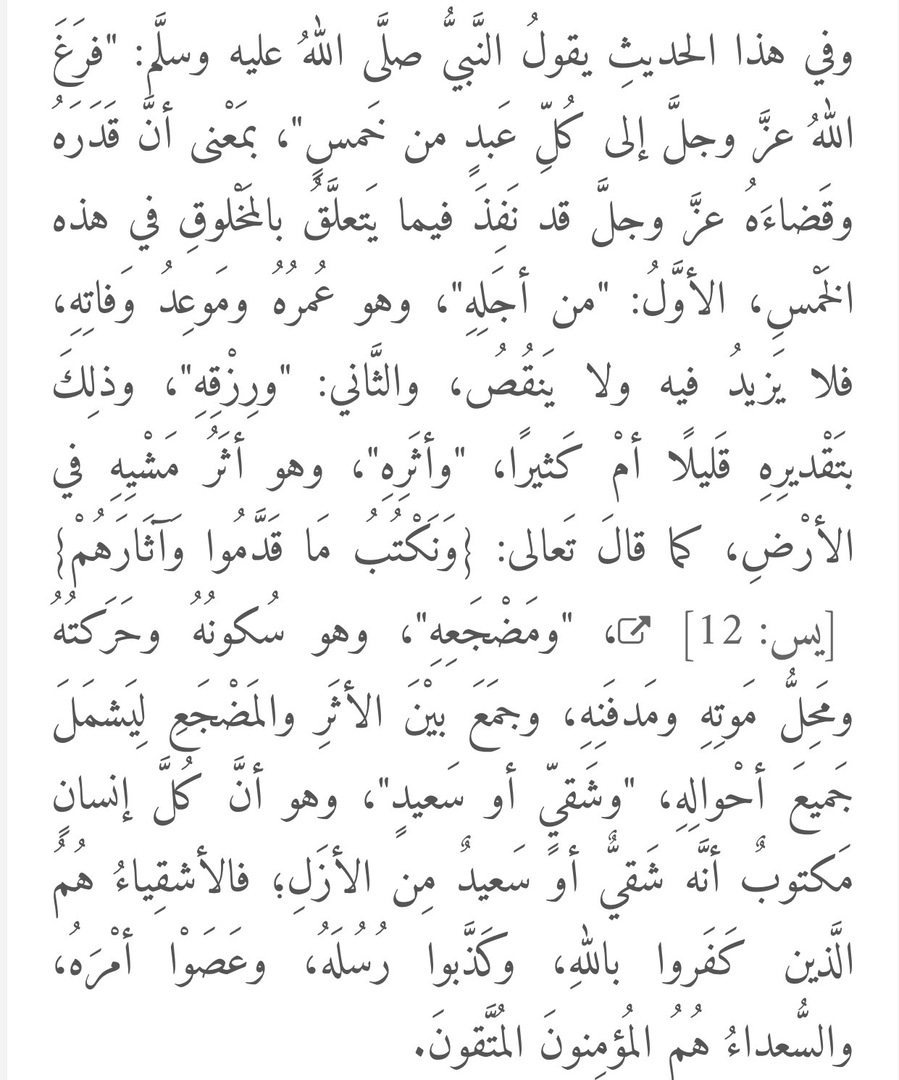 وفي هذا الحديثِ يقولُ النَّبيُّ صلَّى اللهُ عليه وسلَّم: "فرَغَ
اللهُ عزَّ وجلَّ إلى كُلِّ عَبدٍ من خَمسٍ"، بمَعْنى أنَّ قَدَرَه
وقَضاءَهُ عزَّ وجلَّ قد نَفِذَ فيما يَتعلَّقُ بالمَخْلوقِ في هذه
الخَمْسِ، الأوَّلُ: "من أجَلِهِ"، وهو عُمرُهُ ومَوعِدُ وَفاتِهِ،
فلا يَزيدُ فيه ولا يَنقُصُ، والثَّاني: "ورِزْقِهِ"، وذلِكَ
بتَقْديرِهِ قَليلًا أمْ كَثيرًا، "وأثَرِهِ"، وهو أثَرُ مَشْيِهِ في
الأرْضِ، كما قالَ تَعالى: {وَنَكْتُبُ مَا قَدَّمُوا وَآثَارَهُمْ}
[يس: 12] ، "ومَضْجَعِهِ"، وهو سُكونُهُ وحَرَكتُهُ
ومَحِلُّ مَوتِهِ ومَدفَنِهِ، وجمَعَ بيْنَ الأثَرِ والمَضْجَعِ لِيَشمَلَ
جَميعَ أحْوالِهِ، "وشَقيٍّ أو سَعيدٍ"، وهو أنَّ كُلَّ إنسانٍ
مَكتوبٌ أنَّه شَقيٌّ أو سَعيدٌ مِن الأزَلِ؛ فالأشقِياءُ هُمُ
الَّذين كَفَروا باللهِ، وكَذَّبوا رُسُلَهُ، وعَصَوْا أمْرَهُ،
والسُّعداءُ هُمُ المُؤمِنونَ المُتَّقونَ.